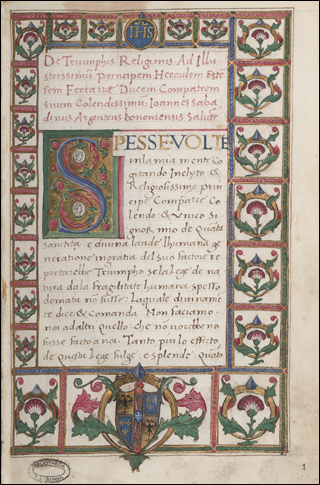 IHS
De Triumphis Religionis Ad Illu
strissimū Principem Herculem Este
sem Ferrariæ Ducem Compatrem
suum Colendissimū; Ioannes Saba
dinus Argenteus bononiensis Salutē
SPESSE VOLTE
in la mia mente co
gitando Inclyto &
Religiosissimo prin
cipe Compatre Co
lendo: & unico Si
gnor mio de quāta
sanctita e divina laude lhumana ge
neratione in gratia del suo factore re
portarebbe Triumpho se la Lege de na
tura da la fragilitate humana spesso
domata nō fusse: La quale divinamē
te dice & comanda Non faciamo
no ad altri quello che nō vorebbeno
fusse facto a noi. Tanto piu lo effecto
de questa lege fulge e splende quāto
1